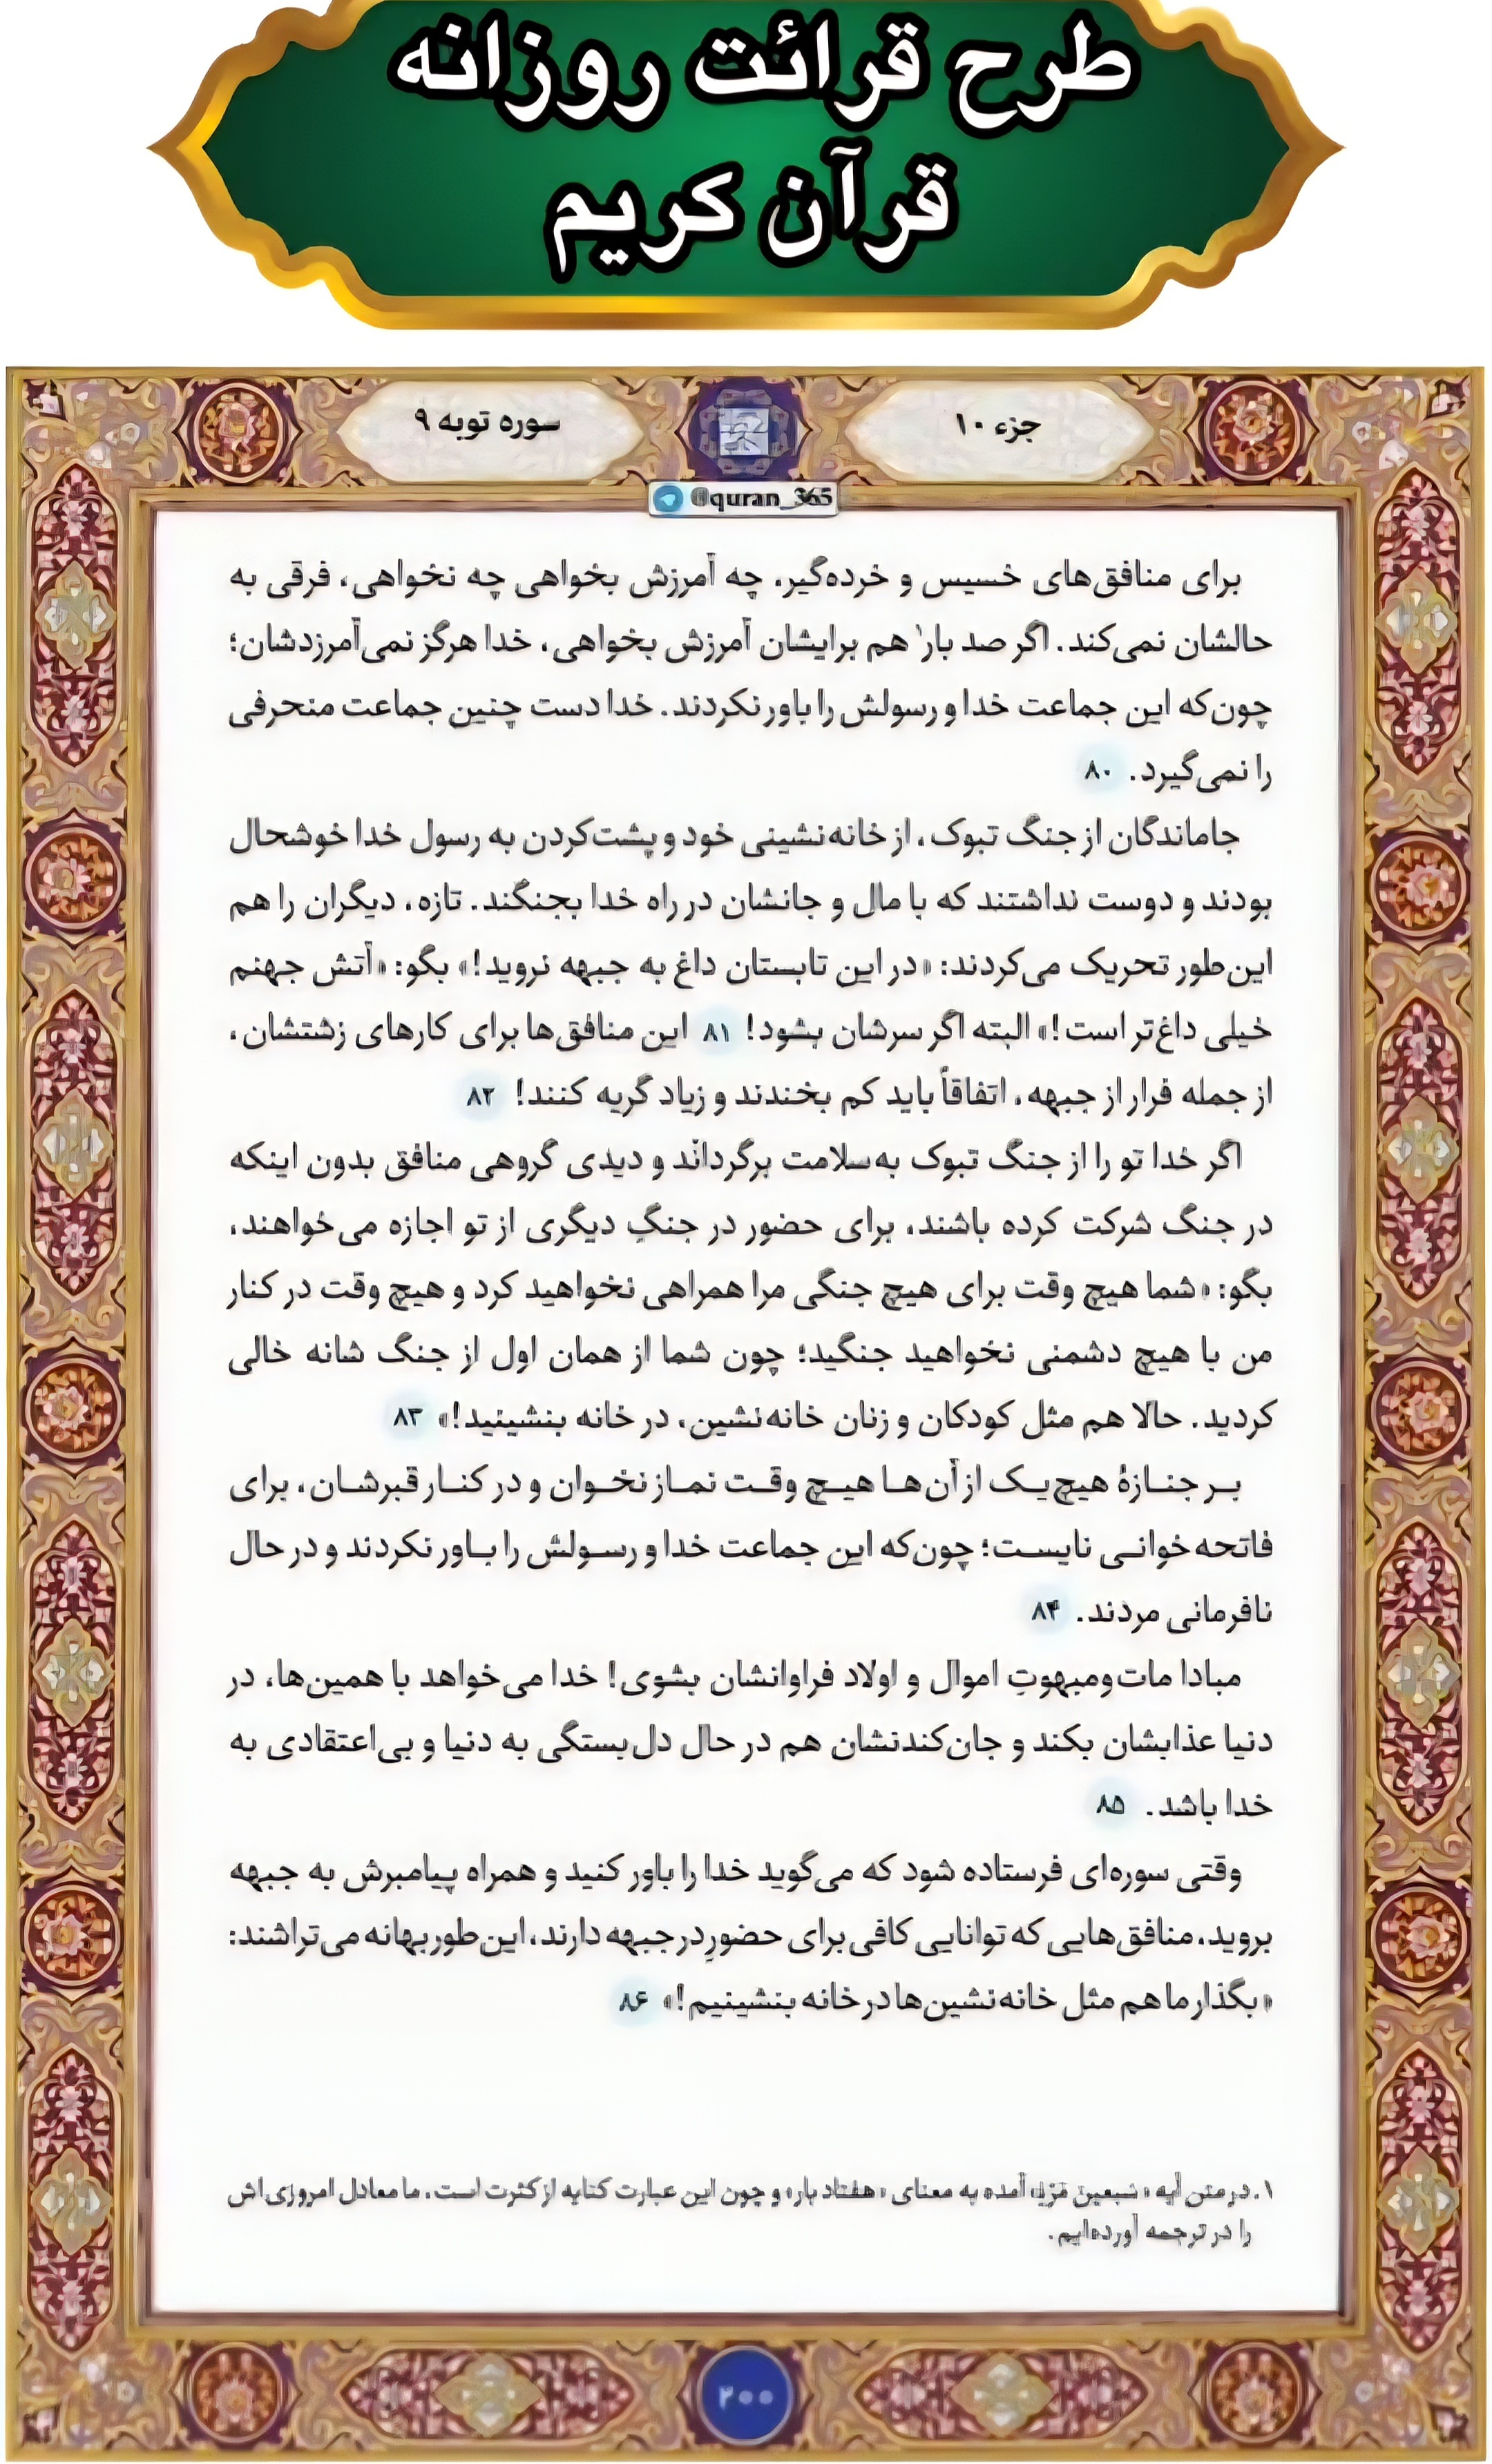 طرح قرائت روزانه
قرآن کریم
جزء ۱۰
سوره توبه ۹
@quran_365
برای منافق‌های خسیس و خرده‌گیر، چه آمرزش بخواهی چه نخواهی، فرقی به
حالشان نمی‌کند. اگر صد بار۱ هم برایشان آمرزش بخواهی، خدا هرگز نمی‌آمرزدشان؛
چون‌که این جماعت خدا و رسولش را باور نکردند. خدا دست چنین جماعت منحرفی
را نمی‌گیرد. ۸۰
جاماندگان از جنگ تبوک، از خانه‌نشینی خود و پشت‌کردن به رسول خدا خوشحال
بودند و دوست نداشتند که با مال و جانشان در راه خدا بجنگند. تازه، دیگران را هم
این‌طور تحریک می‌کردند: «در این تابستان داغ به جبهه نروید!» بگو: «آتش جهنم
خیلی داغ‌تر است!» البته اگر سرشان بشود! ۸۱ این منافق‌ها برای کارهای زشتشان،
از جمله فرار از جبهه، اتفاقاً باید کم بخندند و زیاد گریه کنند! ۸۲
اگر خدا تو را از جنگ تبوک به‌سلامت برگرداند و دیدی گروهی منافق بدون اینکه
در جنگ شرکت کرده باشند، برای حضور در جنگِ دیگری از تو اجازه می‌خواهند،
بگو: «شما هیچ وقت برای هیچ جنگی مرا همراهی نخواهید کرد و هیچ وقت در کنار
من با هیچ دشمنی نخواهید جنگید؛ چون شما از همان اول از جنگ شانه خالی
کردید. حالا هم مثل کودکان و زنان خانه‌نشین، در خانه بنشینید!» ۸۳
بر جنازهٔ هیچ‌یک از آن‌ها هیچ وقت نماز نخوان و در کنار قبرشان، برای
فاتحه‌خوانی نایست؛ چون‌که این جماعت خدا و رسولش را باور نکردند و در حال
نافرمانی مردند. ۸۴
مبادا مات‌ومبهوتِ اموال و اولاد فراوانشان بشوی! خدا می‌خواهد با همین‌ها، در
دنیا عذابشان بکند و جان‌کندنشان هم در حال دل‌بستگی به دنیا و بی‌اعتقادی به
خدا باشد. ۸۵
وقتی سوره‌ای فرستاده شود که می‌گوید خدا را باور کنید و همراه پیامبرش به جبهه
بروید، منافق‌هایی که توانایی کافی برای حضورِ در جبهه دارند، این‌طور بهانه می‌تراشند:
«بگذار ما هم مثل خانه‌نشین‌ها در خانه بنشینیم!» ۸۶
۱. در متن آیه «سبعین مَرَّة» آمده به معنای «هفتاد بار» و چون این عبارت کنایه از کثرت است، ما معادل امروزی‌اش
را در ترجمه آورده‌ایم.
۲۰۰